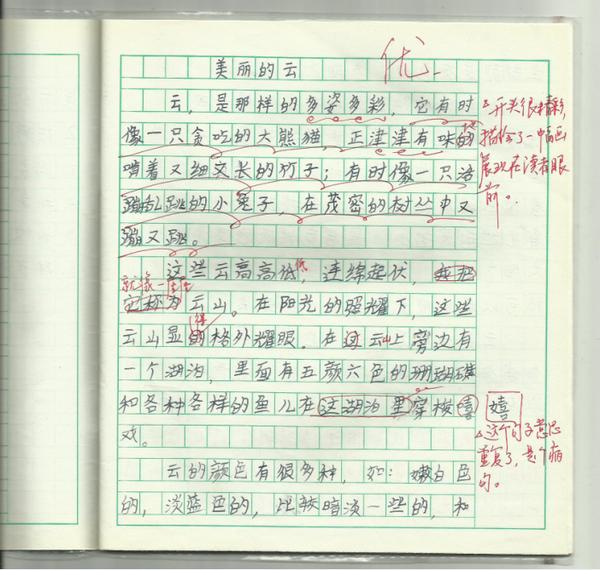 优-
美丽的云
云，是那样的多姿多彩，它有时
像一只贪吃的大熊猫，正津津有味的
地
啃着又细又长的竹子；有时像一只活
蹦乱跳的小兔子，在茂密的树丛中又
蹦又跳。
开头很精彩，
描绘了一幅画
展现在读者眼
前。
这些云高高低低，连绵起伏，
就像一座座
它称为云山。在阳光的照耀下，这些
得
云山显的格外耀眼。在这云山上旁边有
一个湖泊，里面有五颜六色的珊瑚礁
和各种各样的鱼儿在这湖泊里穿梭嘻
嬉
戏。
这个句子意思
重复了，是个病
句。
云的颜色有很多种，如：嫩白色
的，淡蓝色的，比较暗淡一些的，和